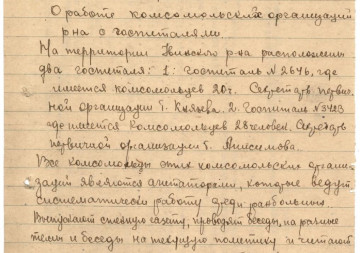 О работе комсомольских организаций
р-на с госпиталями.
На территории Яинского р-на расположены
два госпиталя: 1: госпиталь № 2646, где
имеется комсомольцев 20ч. Секретарь первич-
ной организации т. Князева. 2. Госпиталь № 3423
где имеется комсомольцев 28 человек. Секретарь
первичной организации т. Анисимова.
Все комсомольцы этих комсомольских органи-
заций являются агитаторами, которые ведут
систематически работу среди ранбольных.
Выпускают стенную газету, проводят беседы, на разные
темы и беседы на текущую политику и читают